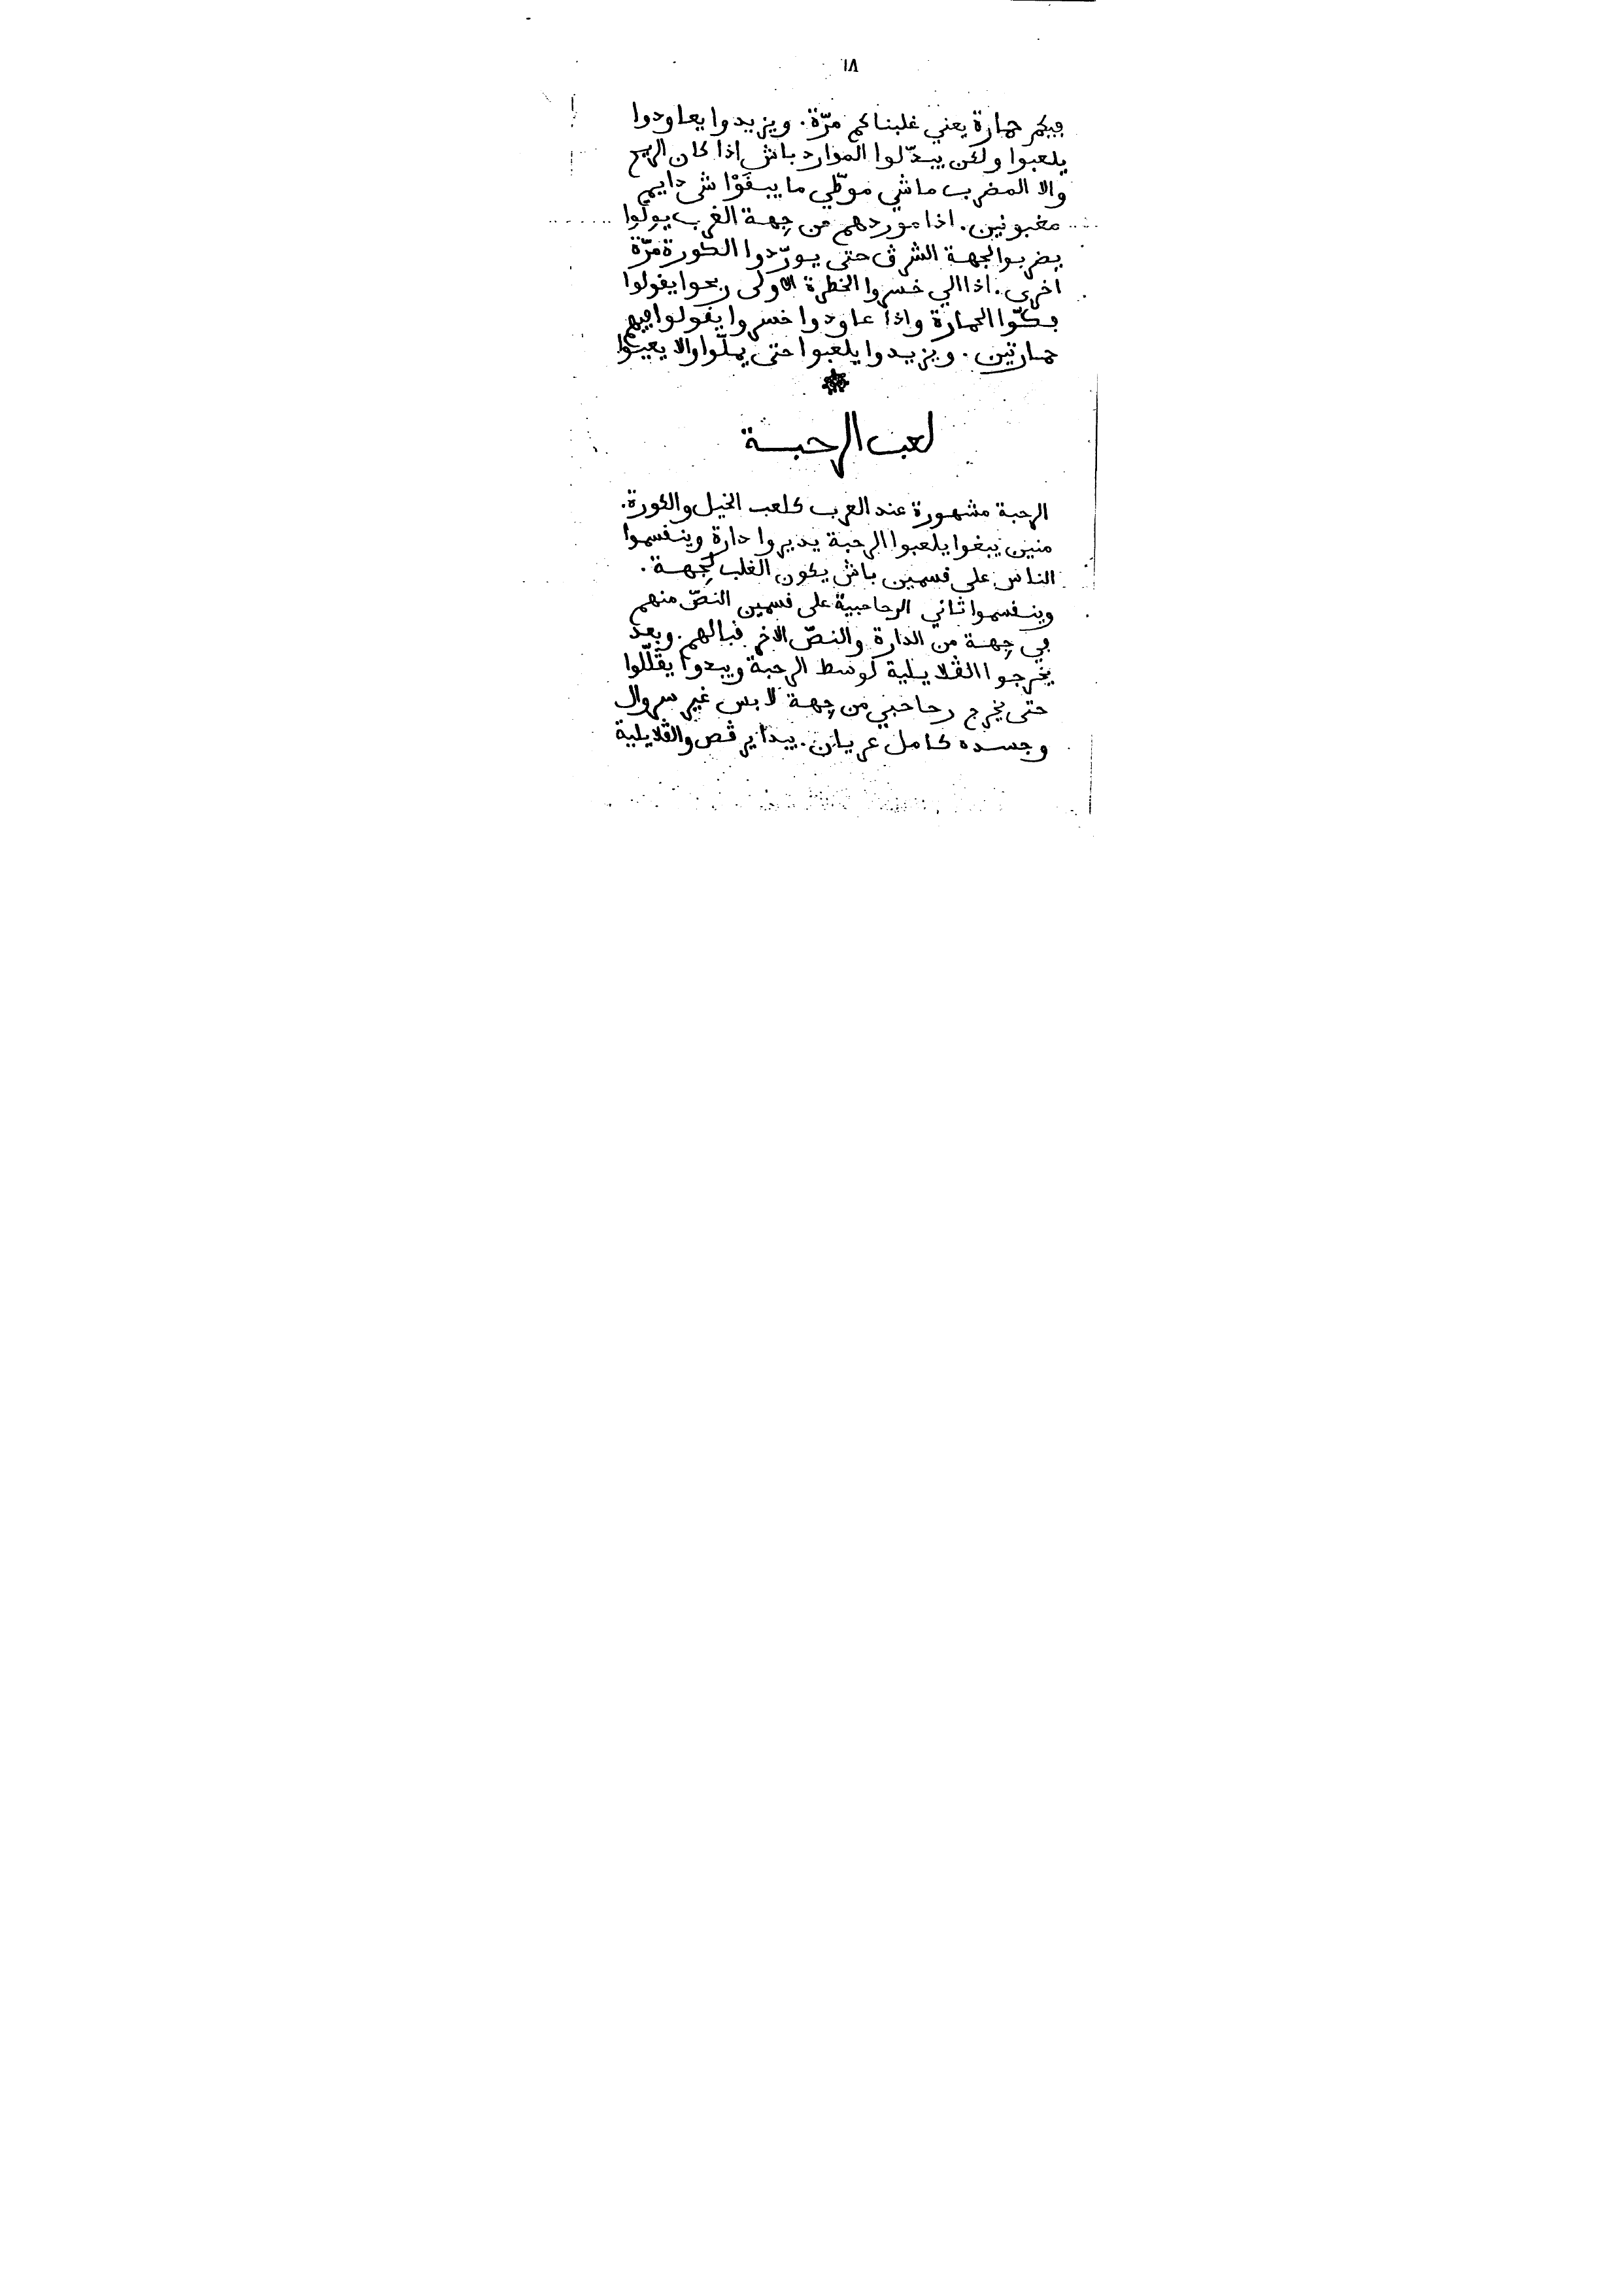 ١٨
ڢيكم حمارة يعني غلبناكم مرّة. ويزيدوا يعاودوا
يلعبوا ولكن يبدّلوا الموارد باش اذا كان الريح
والا المضرب ماشي موطّي ما يبڧَوْا ش دايم
مغبونين. اذا موردهم من جِهة الغرب يولّوا
يضربوا لجهة الشرڧ حتى يورّدوا الكورة مرّة
اخرى. اذا الي خسروا الخطرة الاولى ربحوا يڧولوا
ڢكّوا الحمارة واذا عاودوا خسروا يڧولوا ڢيهم
حمارتين. ويزيدوا يلعبوا حتى يملّوا والا يعيوا
لعب الرحبة
الرحبة مشهورة عند العرب كلعب الخيل والكورة.
منين يبغوا يلعبوا الرحبة يديروا دارة وينڧسموا
الناس على ڧسمين باش يكون الغلب لجِهة.
وينڧسموا ثاني الرحاحبية على ڧسمين النصّ منهم
ڢي جِهة من الدارة والنصّ الاخر ڧبالهم. وبعد
يخرجوا الڨلايلية لوسط الرحبة ويبدوا يڨلّلوا
حتى يخرج رحاحبي من جِهة لابس غير سروال
وجسده كامل عريان. يبدا يرڨص والڨلايلية